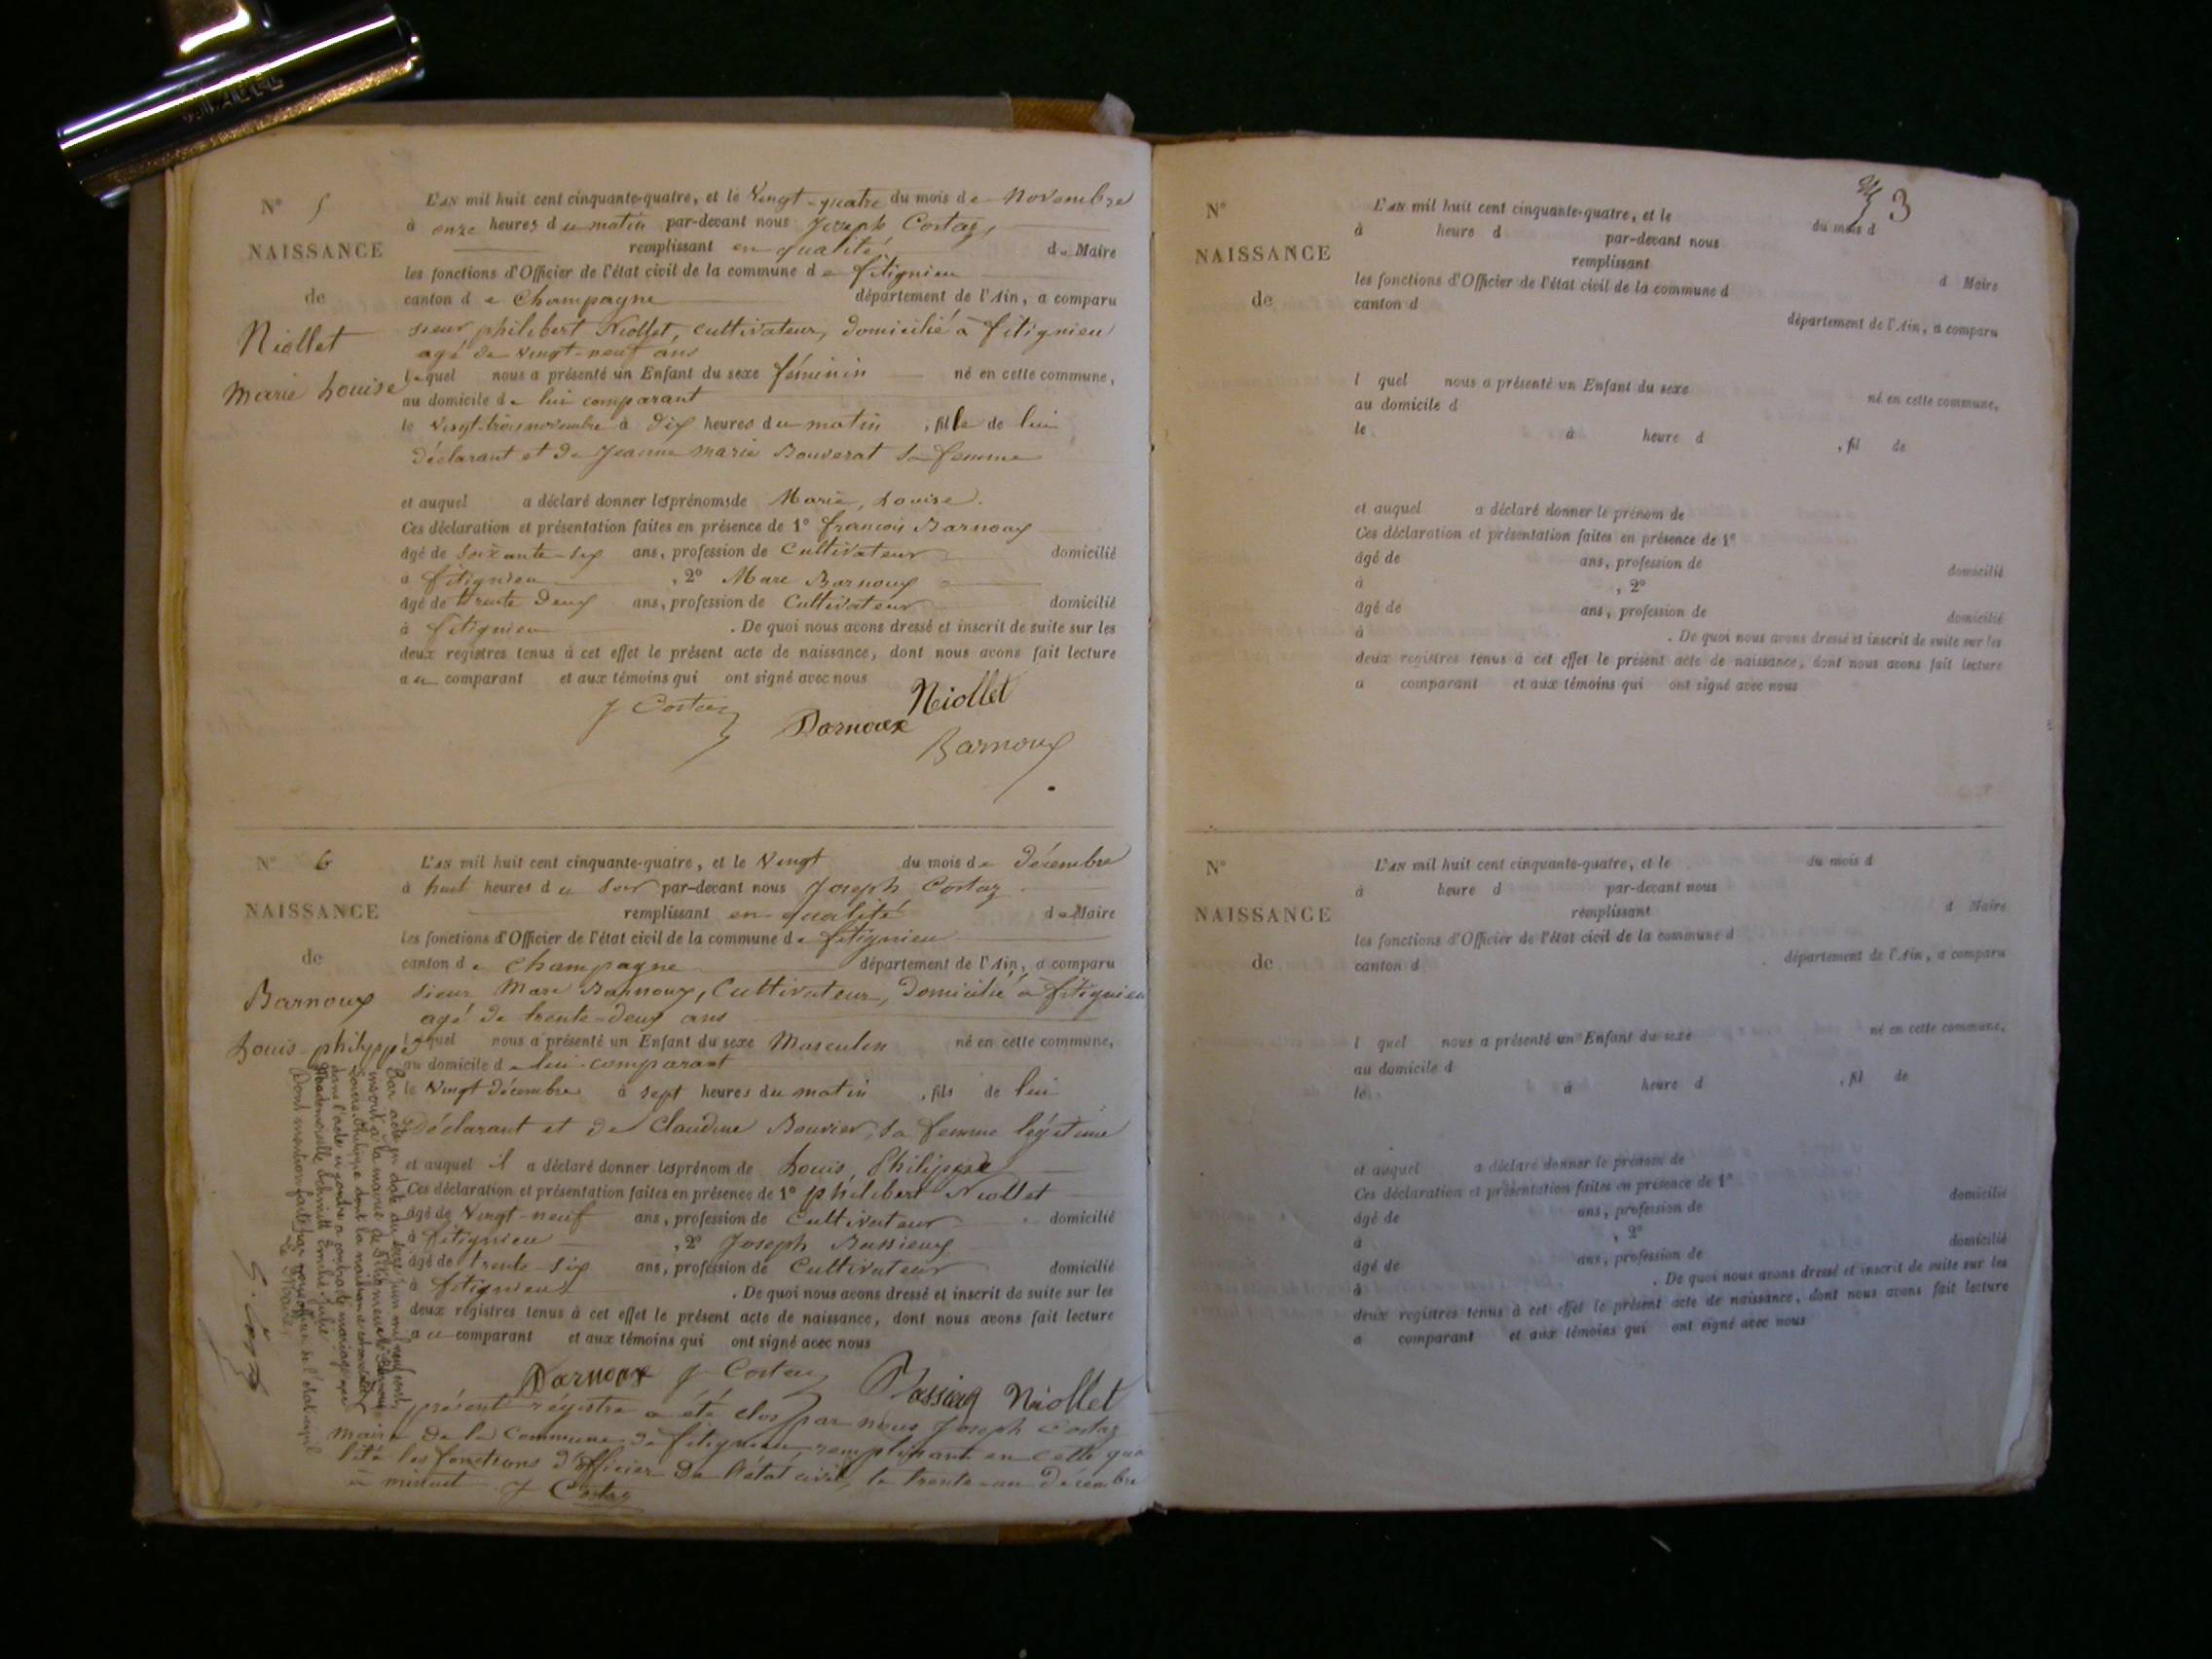 N° 5
NAISSANCE
de
Niollet
Marie Louise
L'AN mil huit cent cinquante-quatre, et le Vingt-quatre du mois de Novembre
à onze heures du matin par-devant nous Joseph Costaz,
remplissant en qualité de Maire
les fonctions d'Officier de l'état civil de la commune de fitignieu
canton de Champagne département de l'Ain, a comparu
sieur philibert Niollet, cultivateur, domicilié à fitignieu
agé de vingt-neuf ans
lequel nous a présenté un Enfant du sexe féminin né en cette commune,
au domicile de lui comparant
le Vingt-trois novembre à dix heures du matin , fille de lui
déclarant et de Jeanne marie Bouverat sa femme
et auquel a déclaré donner les prénoms de Marie, Louise.
Ces déclaration et présentation faites en présence de 1° françois Barnoux
âgé de soixante-six ans, profession de Cultivateur domicilié
à fitignieu , 2° Marc Barnoux
âgé de trente deux ans, profession de Cultivateur domicilié
à fitignieu . De quoi nous avons dressé et inscrit de suite sur les
deux registres tenus à cet effet le présent acte de naissance, dont nous avons fait lecture
au comparant et aux témoins qui ont signé avec nous
J Costaz Barnoux Niollet
Barnoux
N° 6
NAISSANCE
de
Barnoux
Louis philippe
L'AN mil huit cent cinquante-quatre, et le Vingt du mois de décembre
à huit heures du soir par-devant nous Joseph Costaz
remplissant en qualité de Maire
les fonctions d'Officier de l'état civil de la commune de fitignieu
canton de Champagne département de l'Ain, a comparu
sieur Marc Barnoux, Cultivateur, domicilié à fitignieu
agé de trente-deux ans
lequel nous a présenté un Enfant du sexe Masculin né en cette commune,
au domicile de lui comparant
le Vingt décembre à sept heures du matin , fils de lui
Déclarant et de Claudine Bouvier, sa femme légitime
et auquel il a déclaré donner les prénom de Louis, Philippe
Ces déclaration et présentation faites en présence de 1° philibert Niollet
âgé de Vingt-neuf ans, profession de Cultivateur domicilié
à fitignieu , 2° Joseph Bussieux
âgé de trente-six ans, profession de Cultivateur domicilié
à fitignieu . De quoi nous avons dressé et inscrit de suite sur les
deux registres tenus à cet effet le présent acte de naissance, dont nous avons fait lecture
au comparant et aux témoins qui ont signé avec nous
Barnoux J Costaz Niollet
présent régistre a été clos par nous Joseph Costaz
maire de la Commune de fitignieu, remplissant en cette qua
lité les fonctions d'officier de l'état civil, le trente-un décembre
à minuit J Costaz
Par acte en date du juin mil neuf cent
inscrit à la mairie de
Louis Philippe dont la naissance est constatée
dans l'acte ci contre a contracté mariage avec
Mademoiselle Schmitt Emilie Julie
Dont mention faite par nous officier de l'état civil
Le Maire,
3
N°
NAISSANCE
de
L'AN mil huit cent cinquante-quatre, et le du mois d
à heure d par-devant nous
remplissant d Maire
les fonctions d'Officier de l'état civil de la commune d
canton d département de l'Ain, a comparu
l quel nous a présenté un Enfant du sexe né en cette commune,
au domicile d
le à heure d , fil de
et auquel a déclaré donner le prénom de
Ces déclaration et présentation faites en présence de 1°
âgé de ans, profession de domicilié
à , 2°
âgé de ans, profession de domicilié
à . De quoi nous avons dressé et inscrit de suite sur les
deux registres tenus à cet effet le présent acte de naissance, dont nous avons fait lecture
a comparant et aux témoins qui ont signé avec nous
N°
NAISSANCE
de
L'AN mil huit cent cinquante-quatre, et le du mois d
à heure d par-devant nous
remplissant d Maire
les fonctions d'Officier de l'état civil de la commune d
canton d département de l'Ain, a comparu
l quel nous a présenté un Enfant du sexe né en cette commune,
au domicile d
le à heure d , fil de
et auquel a déclaré donner le prénom de
Ces déclaration et présentation faites en présence de 1°
âgé de ans, profession de domicilié
à , 2°
âgé de ans, profession de domicilié
à . De quoi nous avons dressé et inscrit de suite sur les
deux registres tenus à cet effet le présent acte de naissance, dont nous avons fait lecture
a comparant et aux témoins qui ont signé avec nous